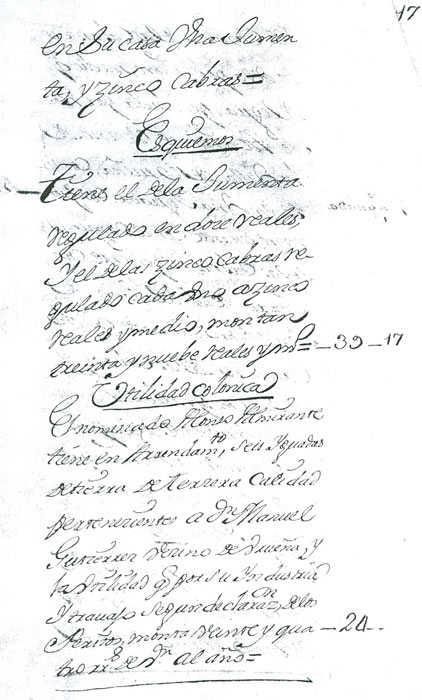 17
en su casa Vna Jumen
ta, y zinco cabras=
Esquiemos
Tiene el de la Jumenta
regulado en doze reales,
Y el de las zinco cabras re-
gulado cada Vna a zinco
reales y medio, montan
treinta y nuebe reales y mo= -39-17
Vtilidad colonica
El nominado Alonso Almirante
tiene en Arrendamto, seis Yguadas
de tierra de terzera Calidad
pertenezientes a Dn Manuel
Gutierrez Vezino de Dueñas, y
la Vtilidad q por su Yndustria
Y trauajo segun declarazn de los
Peritos, monta Veinte y qua -24-
tro rrs de Vn al año=